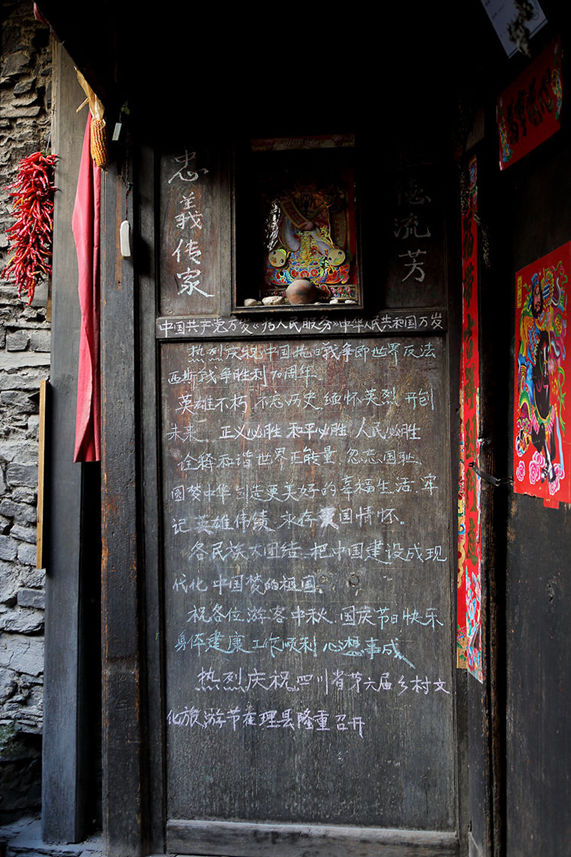 忠義传家
德流芳
中国共产党万岁《为人民服务》中华人民共和国万岁
热烈庆祝中国抗日战争即世界反法
西斯战争胜利70周年、
英雄不朽、不忘历史、缅怀英烈、开创
未来、正义必胜、和平必胜、人民必胜
诠释和谐世界正能量、勿忘国耻、
圆梦中华创造更美好的幸福生活、牢
记英雄伟绩、永存爱国情怀。
各民族大团结、把中国建设成现
代化中国梦的祖国。
祝各位游客中秋、国庆节日快乐
身体建康工作顺利心想事成
热烈庆祝四川省第六届乡村文
化旅游节在理县隆重召开